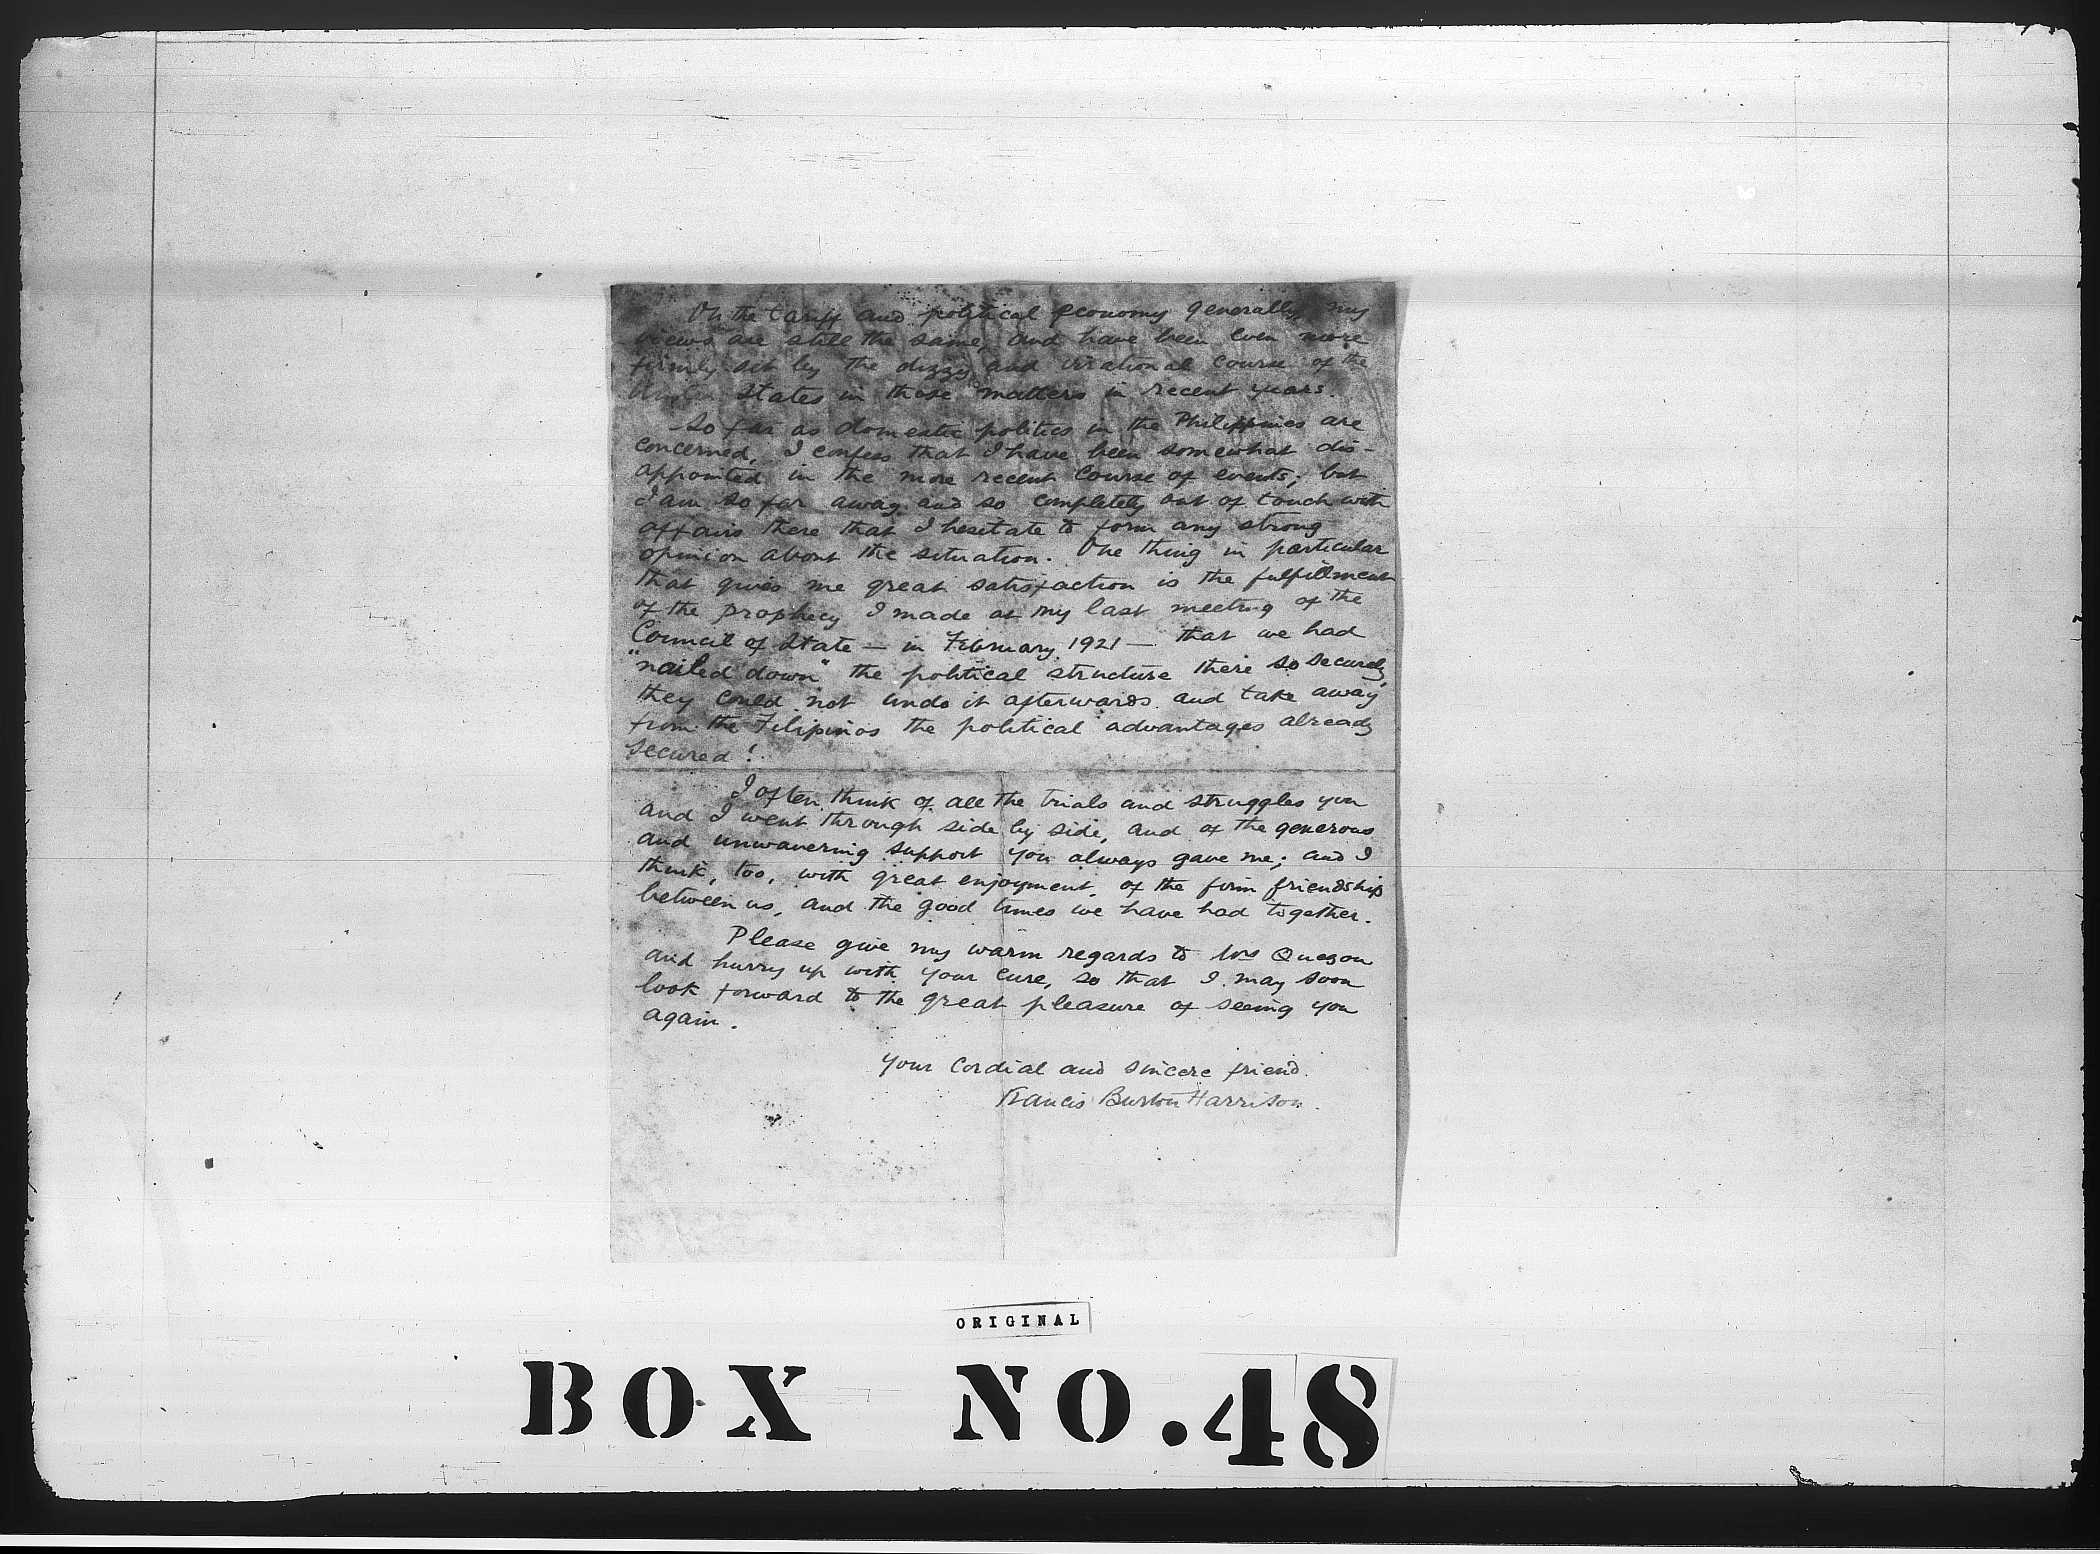 On the tariff and political economy generally, my
views are still the same, and have been even more
firmly set by the dizzy and irrational course of the
United States in those matters in recent years.
So far as domestic politics in the Philippines are
concerned, I confess that I have been somewhat dis-
appointed in the more recent course of events; but
I am so far away and so completely out of touch with
affairs there that I hesitate to form any strong
opinion about the situation. One thing in particular
that gives me great satisfaction is the fulfillment
of the prophecy I made at my last meeting of the
Council of State — in February 1921 — that we had
"nailed down" the political structure there so securely,
they could not undo it afterwards and take away
from the Filipinos the political advantages already
secured!
I often think of all the trials and struggles you
and I went through side by side, and of the generous
and unwavering support you always gave me; and I
think, too, with great enjoyment of the firm friendship
between us, and the good times we have had together.
Please give my warm regards to Mrs Quezon
and hurry up with your cure, so that I may soon
look forward to the great pleasure of seeing you
again.
Your cordial and sincere friend.
Francis Burton Harrison.
ORIGINAL
BOX NO. 48